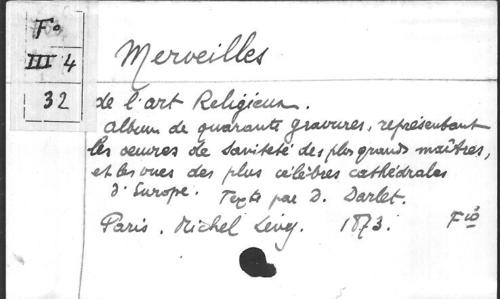 Fº
III 4
32
Merveilles
de l'art Religieux.
album de quarante gravures, représentant
les œuvres de Saniteté des plus grands maîtres,
et les vues des plus célèbres cathédrales
d'Europe. Texte par D. Darlet.
Paris. Michel Levy. 1873. Fió